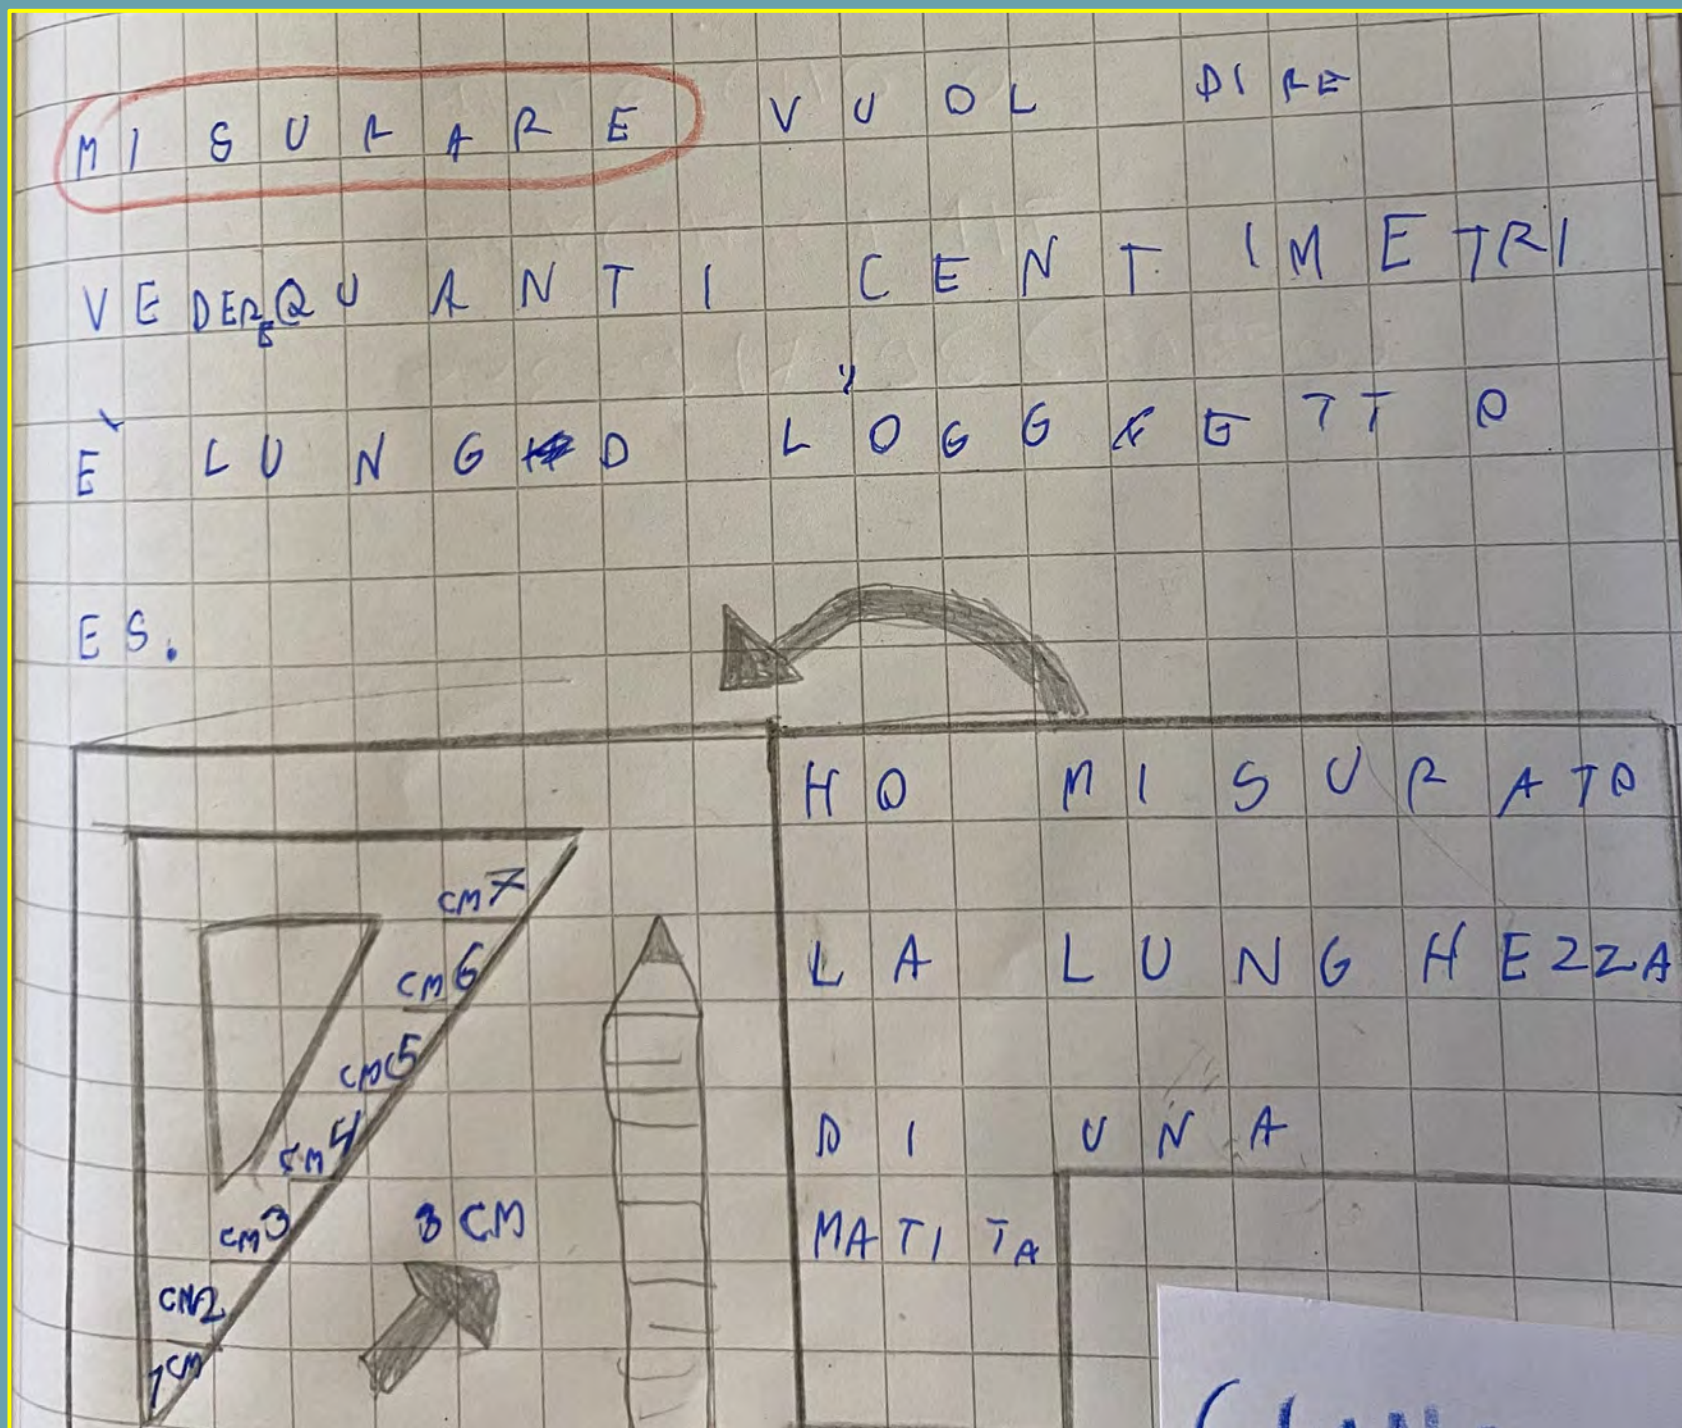 MISURARE VUOL DIRE
VEDERE QUANTI CENTIMETRI
È LUNGO L'OGGETTO
ES.
HO MISURATO
LA LUNGHEZZA
DI UNA
MATITA
CM7
CM6
CM5
CM4
CM3
CM2
1CM
8 CM